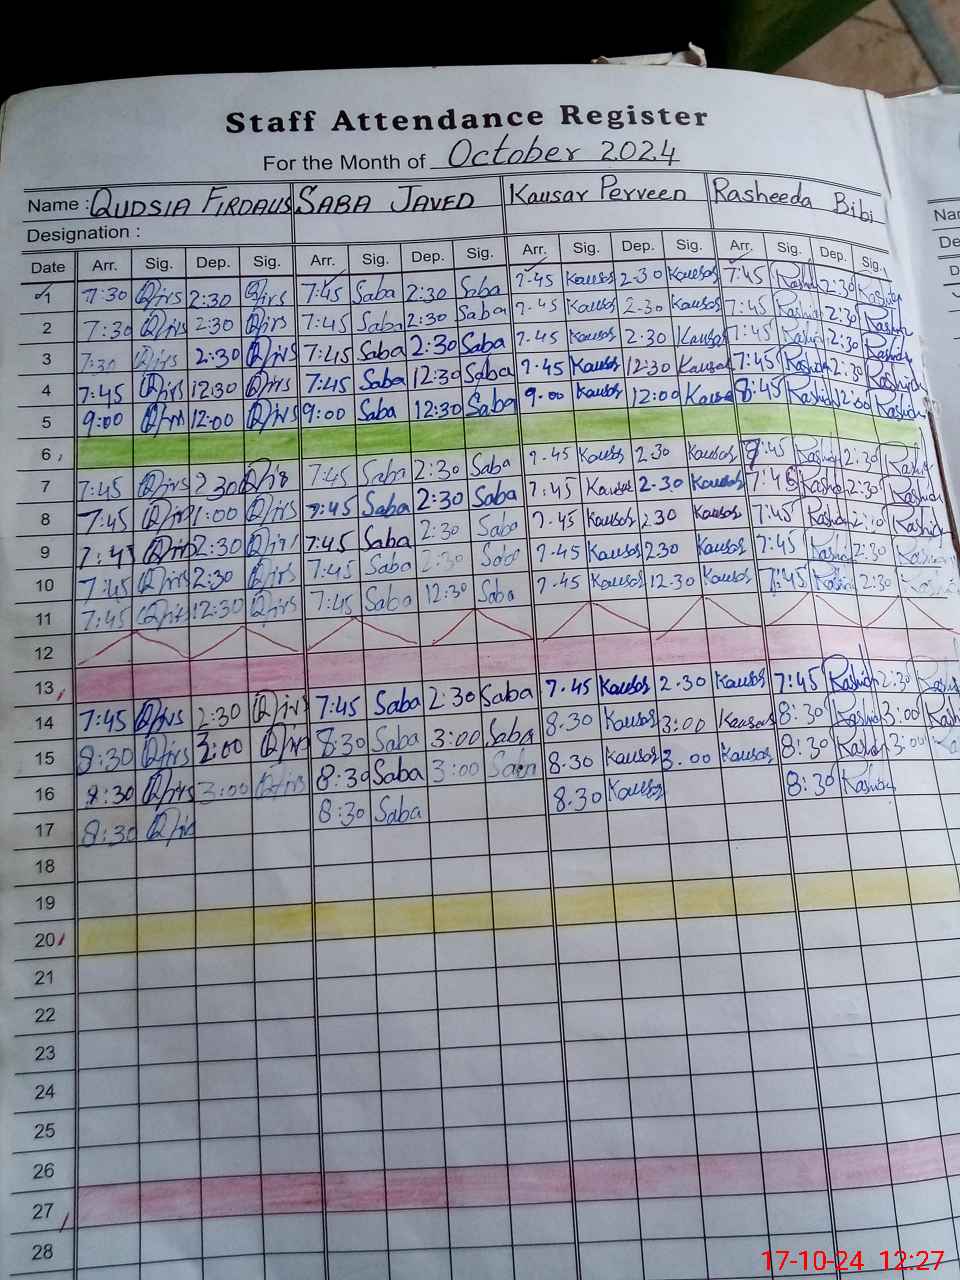 Staff Attendance Register
For the Month of October 2024
Name : QUDSIA FIRDAUS SABA JAVED Kausar Perveen Rasheeda Bibi
Designation :
Date Arr. Sig. Dep. Sig. Arr. Sig. Dep. Sig. Arr. Sig. Dep. Sig. Arr. Sig. Dep. Sig.
1 7:30 2:30 7:45 Saba 2:30 Saba 7.45 Kausar 2.30 Kausar 7:45 Rashida 2:30 Rashida
2 7:30 2:30 7:45 Saba 2:30 Saba 7.45 Kausar 2.30 Kausar 7:45 Rashida 2:30 Rashida
3 7:30 2:30 7:45 Saba 2:30 Saba 7.45 Kausar 2.30 Kausar 7:45 Rashida 2:30 Rashida
4 7:45 12:30 7:45 Saba 12:30 Saba 7.45 Kausar 12.30 Kausar 7:45 Rashida 2:30 Rashida
5 9:00 12:00 9:00 Saba 12:30 Saba 9.00 Kausar 12:00 Kausar 8:45 Rashida 2:00 Rashida
6
7 7:45 2:30 7:45 Saba 2:30 Saba 7.45 Kausar 2.30 Kausar 7:45 Rashida 2:30 Rashida
8 7:45 1:00 7:45 Saba 2:30 Saba 7.45 Kausar 2.30 Kausar Rashida 2:30 Rashida
9 2:30 7:45 Saba 2:30 Saba 7.45 Kausar 2.30 Kausar 7:45 Rashida Rashida
10 7:45 2:30 7:45 Saba 2:30 Saba 7.45 Kausar 2.30 Kausar 7:45 Rashida 2:30 Rashida
11 7:45 12:30 7:45 Saba 12:30 Saba 7.45 Kausar 12.30 Kausar 7:45 Rashida 2:30
12
13
14 7:45 2:30 7:45 Saba 2:30 Saba 7.45 Kausar 2.30 Kausar 7:45 Rashida 2:30 Rashida
15 8:30 3:00 8:30 Saba 3:00 Saba 8.30 Kausar 3:00 Kausar 8:30 Rashida 3:00 Rashida
16 8:30 3:00 8:30 Saba 3:00 Saba 8.30 Kausar 3.00 Kausar 8:30 Rashida 3:00
17 8:30 8:30 Saba 8.30 Kausar 8:30 Rashida
18
19
20
21
22
23
24
25
26
27
28
17-10-24 12:27